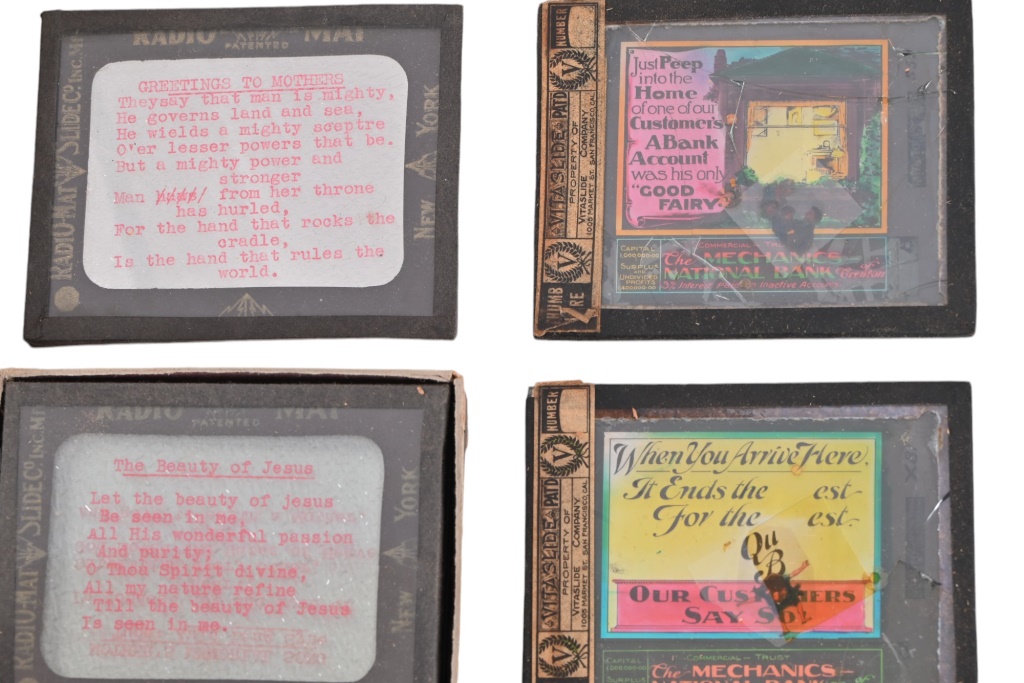 RADIO MAT
PATENTED
RADIO-MAT SLIDE Co. INC.
NEW YORK
GREETINGS TO MOTHERS
Theysay that man is mighty,
He governs land and sea,
He wields a mighty sceptre
O'er lesser powers that be.
But a mighty power and
stronger
Man from her throne
has hurled,
For the hand that rocks the
cradle,
Is the hand that rules the
world.
NUMBER
VITASLIDE-PATD
PROPERTY OF
VITASLIDE COMPANY
1005 MARKET ST. SAN FRANCISCO, CAL
THUMB
Just Peep
into the
Home
of one of our
Customer's
A Bank
Account
was his only
"GOOD
FAIRY.
CAPITAL
SURPLUS
AND
UNDIVIDED
PROFITS
COMMERCIAL - TRUST
The MECHANICS
NATIONAL BANK
3% Interest Paid on Inactive Accounts
RADIO MAT
PATENTED
RADIO-MAT SLIDE Co. INC.
NEW YORK
The Beauty of Jesus
Let the beauty of jesus
Be seen in me,
All His wonderful passion
And purity;
O Thou Spirit divine,
All my nature refine
Till the beauty of Jesus
Is seen in me.
NUMBER
VITASLIDE-PATD
PROPERTY OF
VITASLIDE COMPANY
1005 MARKET ST. SAN FRANCISCO, CAL
When You Arrive Here,
It Ends the est-
For the est-
Qu
B
OUR CUSTOMERS
SAY SO!
CAPITAL
SURPLUS
COMMERCIAL - TRUST
The MECHANICS
NATIONAL BANK